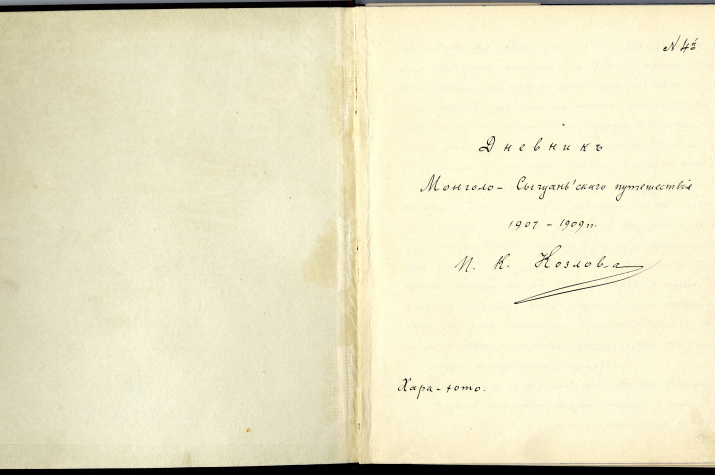 N 4й
Дневникъ
Монголо-Сычуань'скаго путешествія
1907-1909 гг.
П. К. Козлова
Хара-хото.